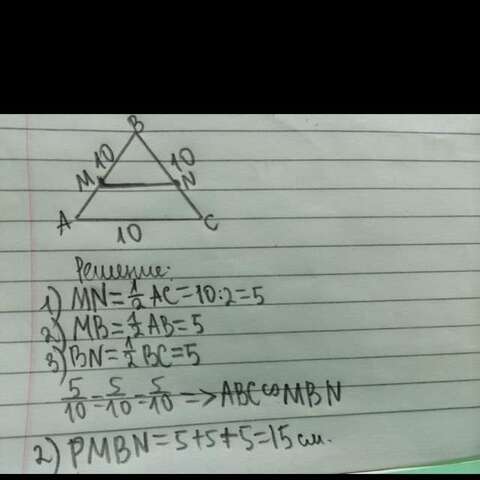 B
10 10
M N
A C
10
Решение:
1) MN=1/2 AC=10:2=5
2) MB=1/2 AB=5
3) BN=1/2 BC=5
5/10=5/10=5/10 => ABC∞MBN
2) PMBN=5+5+5=15см.